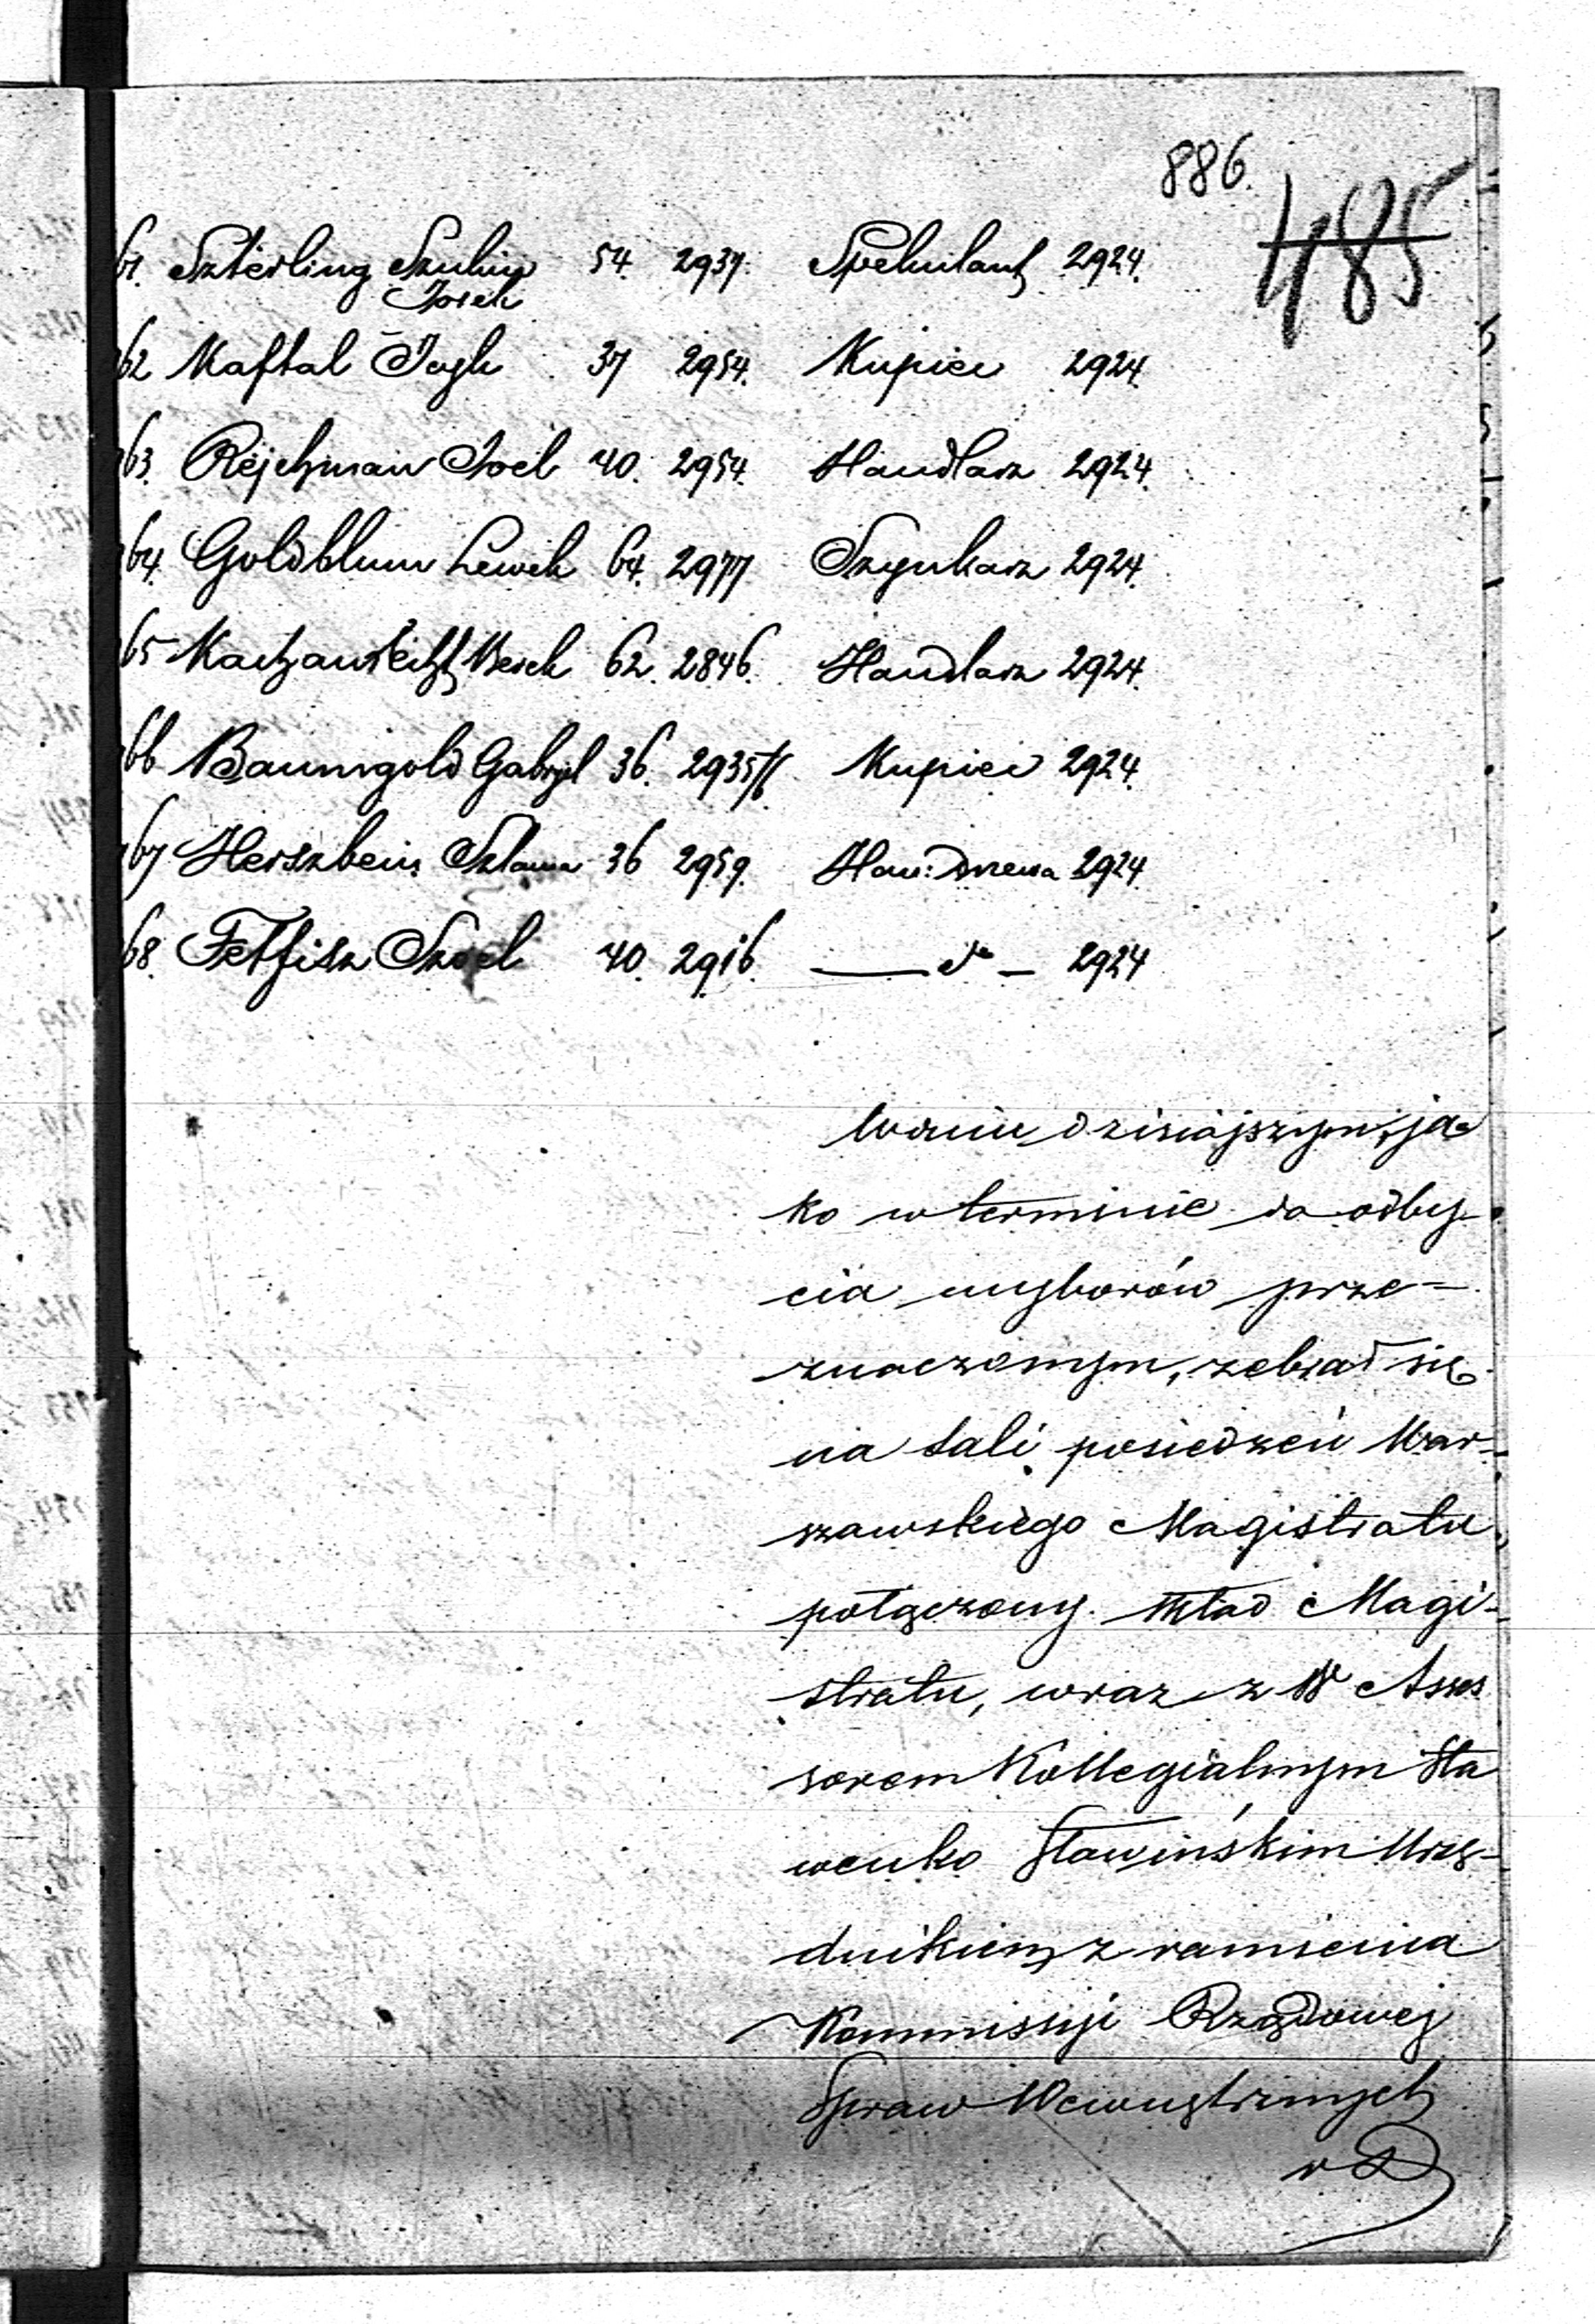 886.
485
61. Szterling Szulim 54. 2937. Spekulant 2924.
Josek
62 Naftal Josk 37 2954. Kupiec 2924.
63. Rejchman Joel 40. 2954. Handlarz 2924.
64. Goldblum Lewek 64. 2977 Szynkarz 2924.
65 Berek 62. 2846. Handlarz 2924.
66 Baumgold Gabryel 36. 2935/6 Kupiec 2924.
67 Herszbein Szlama 36 2959. Han: drzewa 2924.
68. Fetfisz 40. 2916. — do — 2924
W dniu dzisiejszym, ja
ko w terminie do odby-
cia wyborów prze-
znaczonym, zebrał się
na sali posiedzeń War-
szawskiego Magistratu
połączony skład Magi-
stratu, wraz z W Asses
sorem Kollegialnym Sta
wenko Sławińskim Urzę-
dnikiem z ramienia
Kommissyi Rządowej
Spraw Wewnętrznych